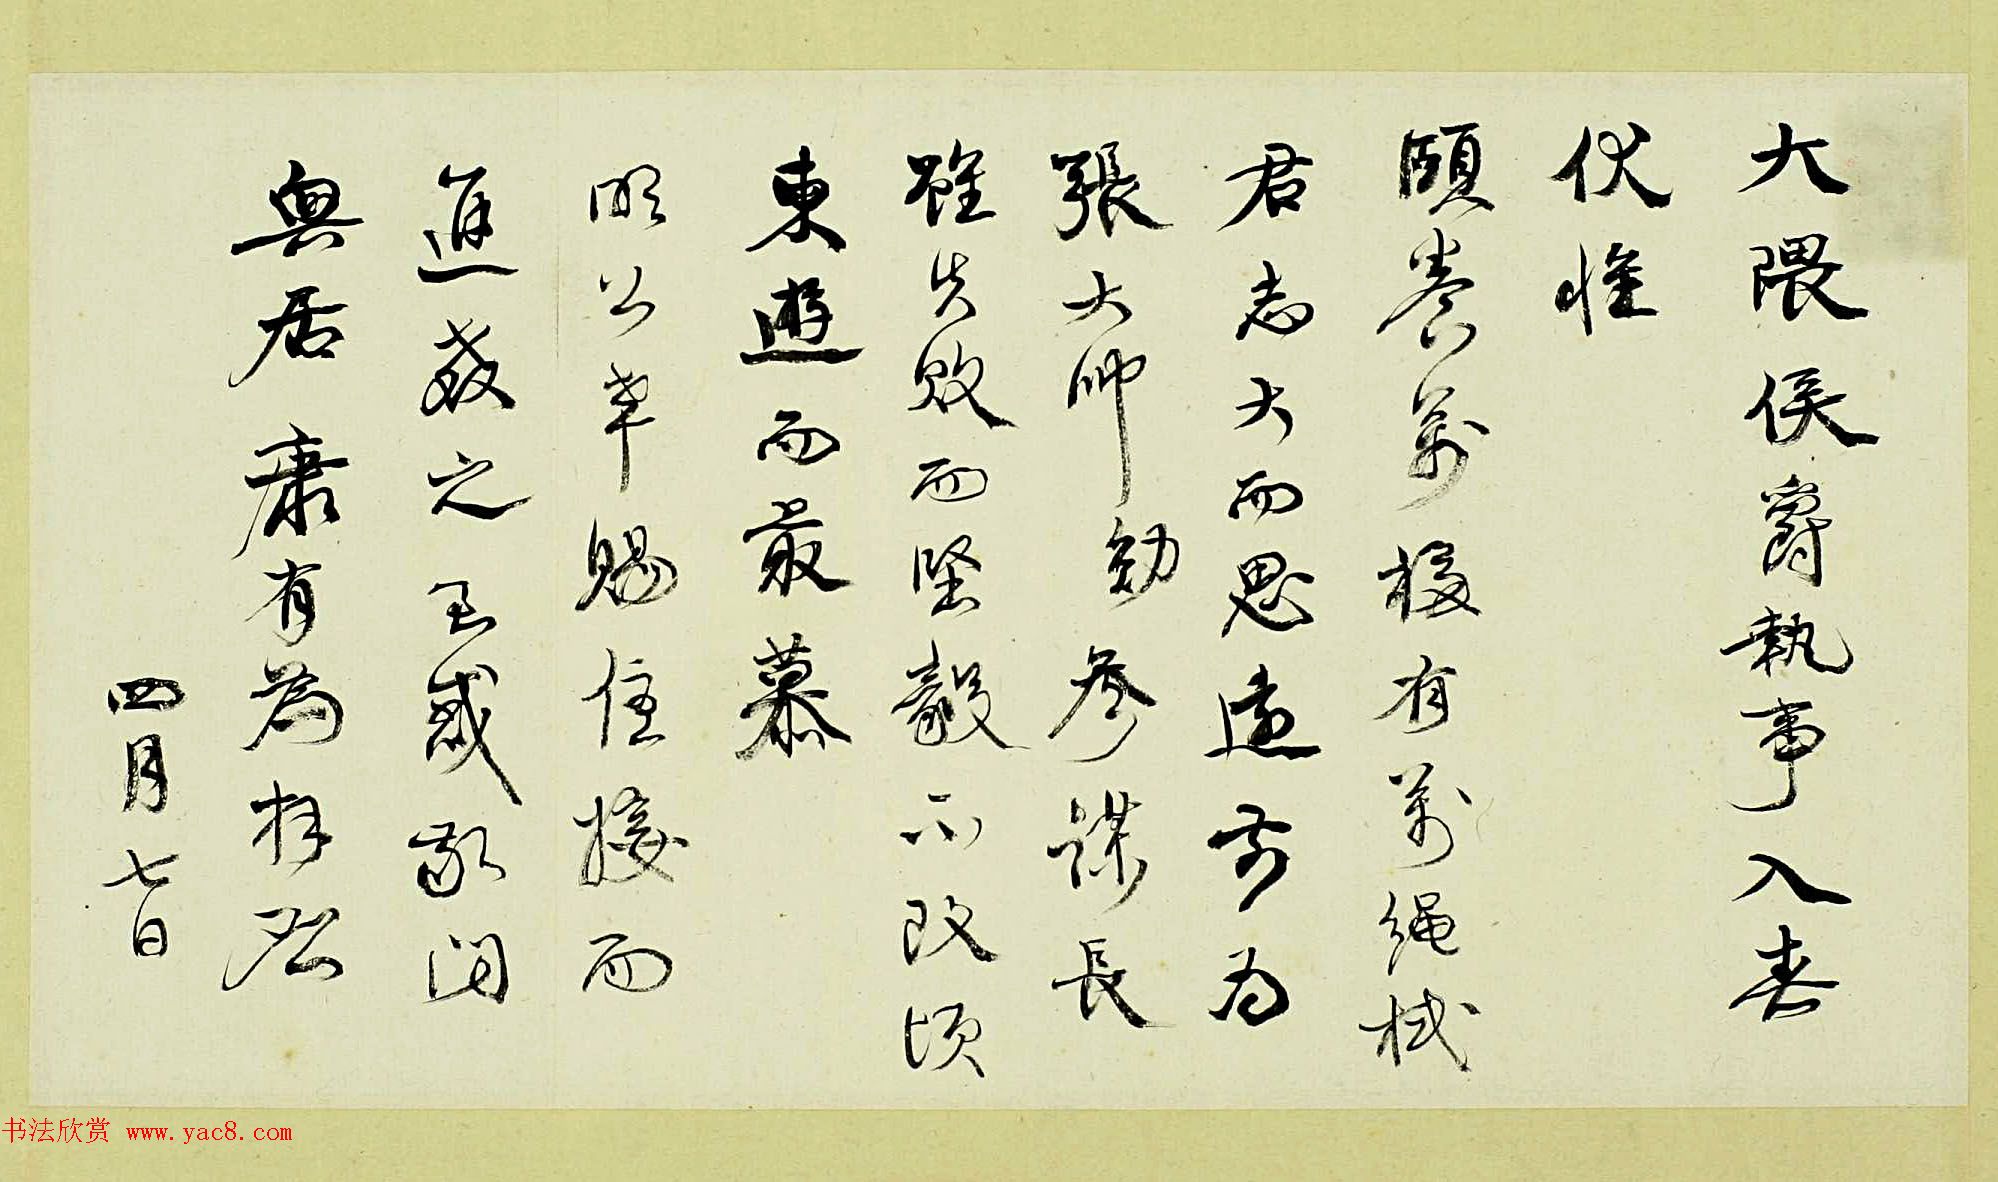 大隈侯爵執事入春
伏惟
頤養萬福有萬繩栻
君志大而思遠前為
張大帥勛參謀長
雖失敗而堅毅不改頃
東遊而最慕
明公幸賜佳接而
進教之至感敬問
輿居 康有為拜啓
四月七日
书法欣赏 www.yac8.com